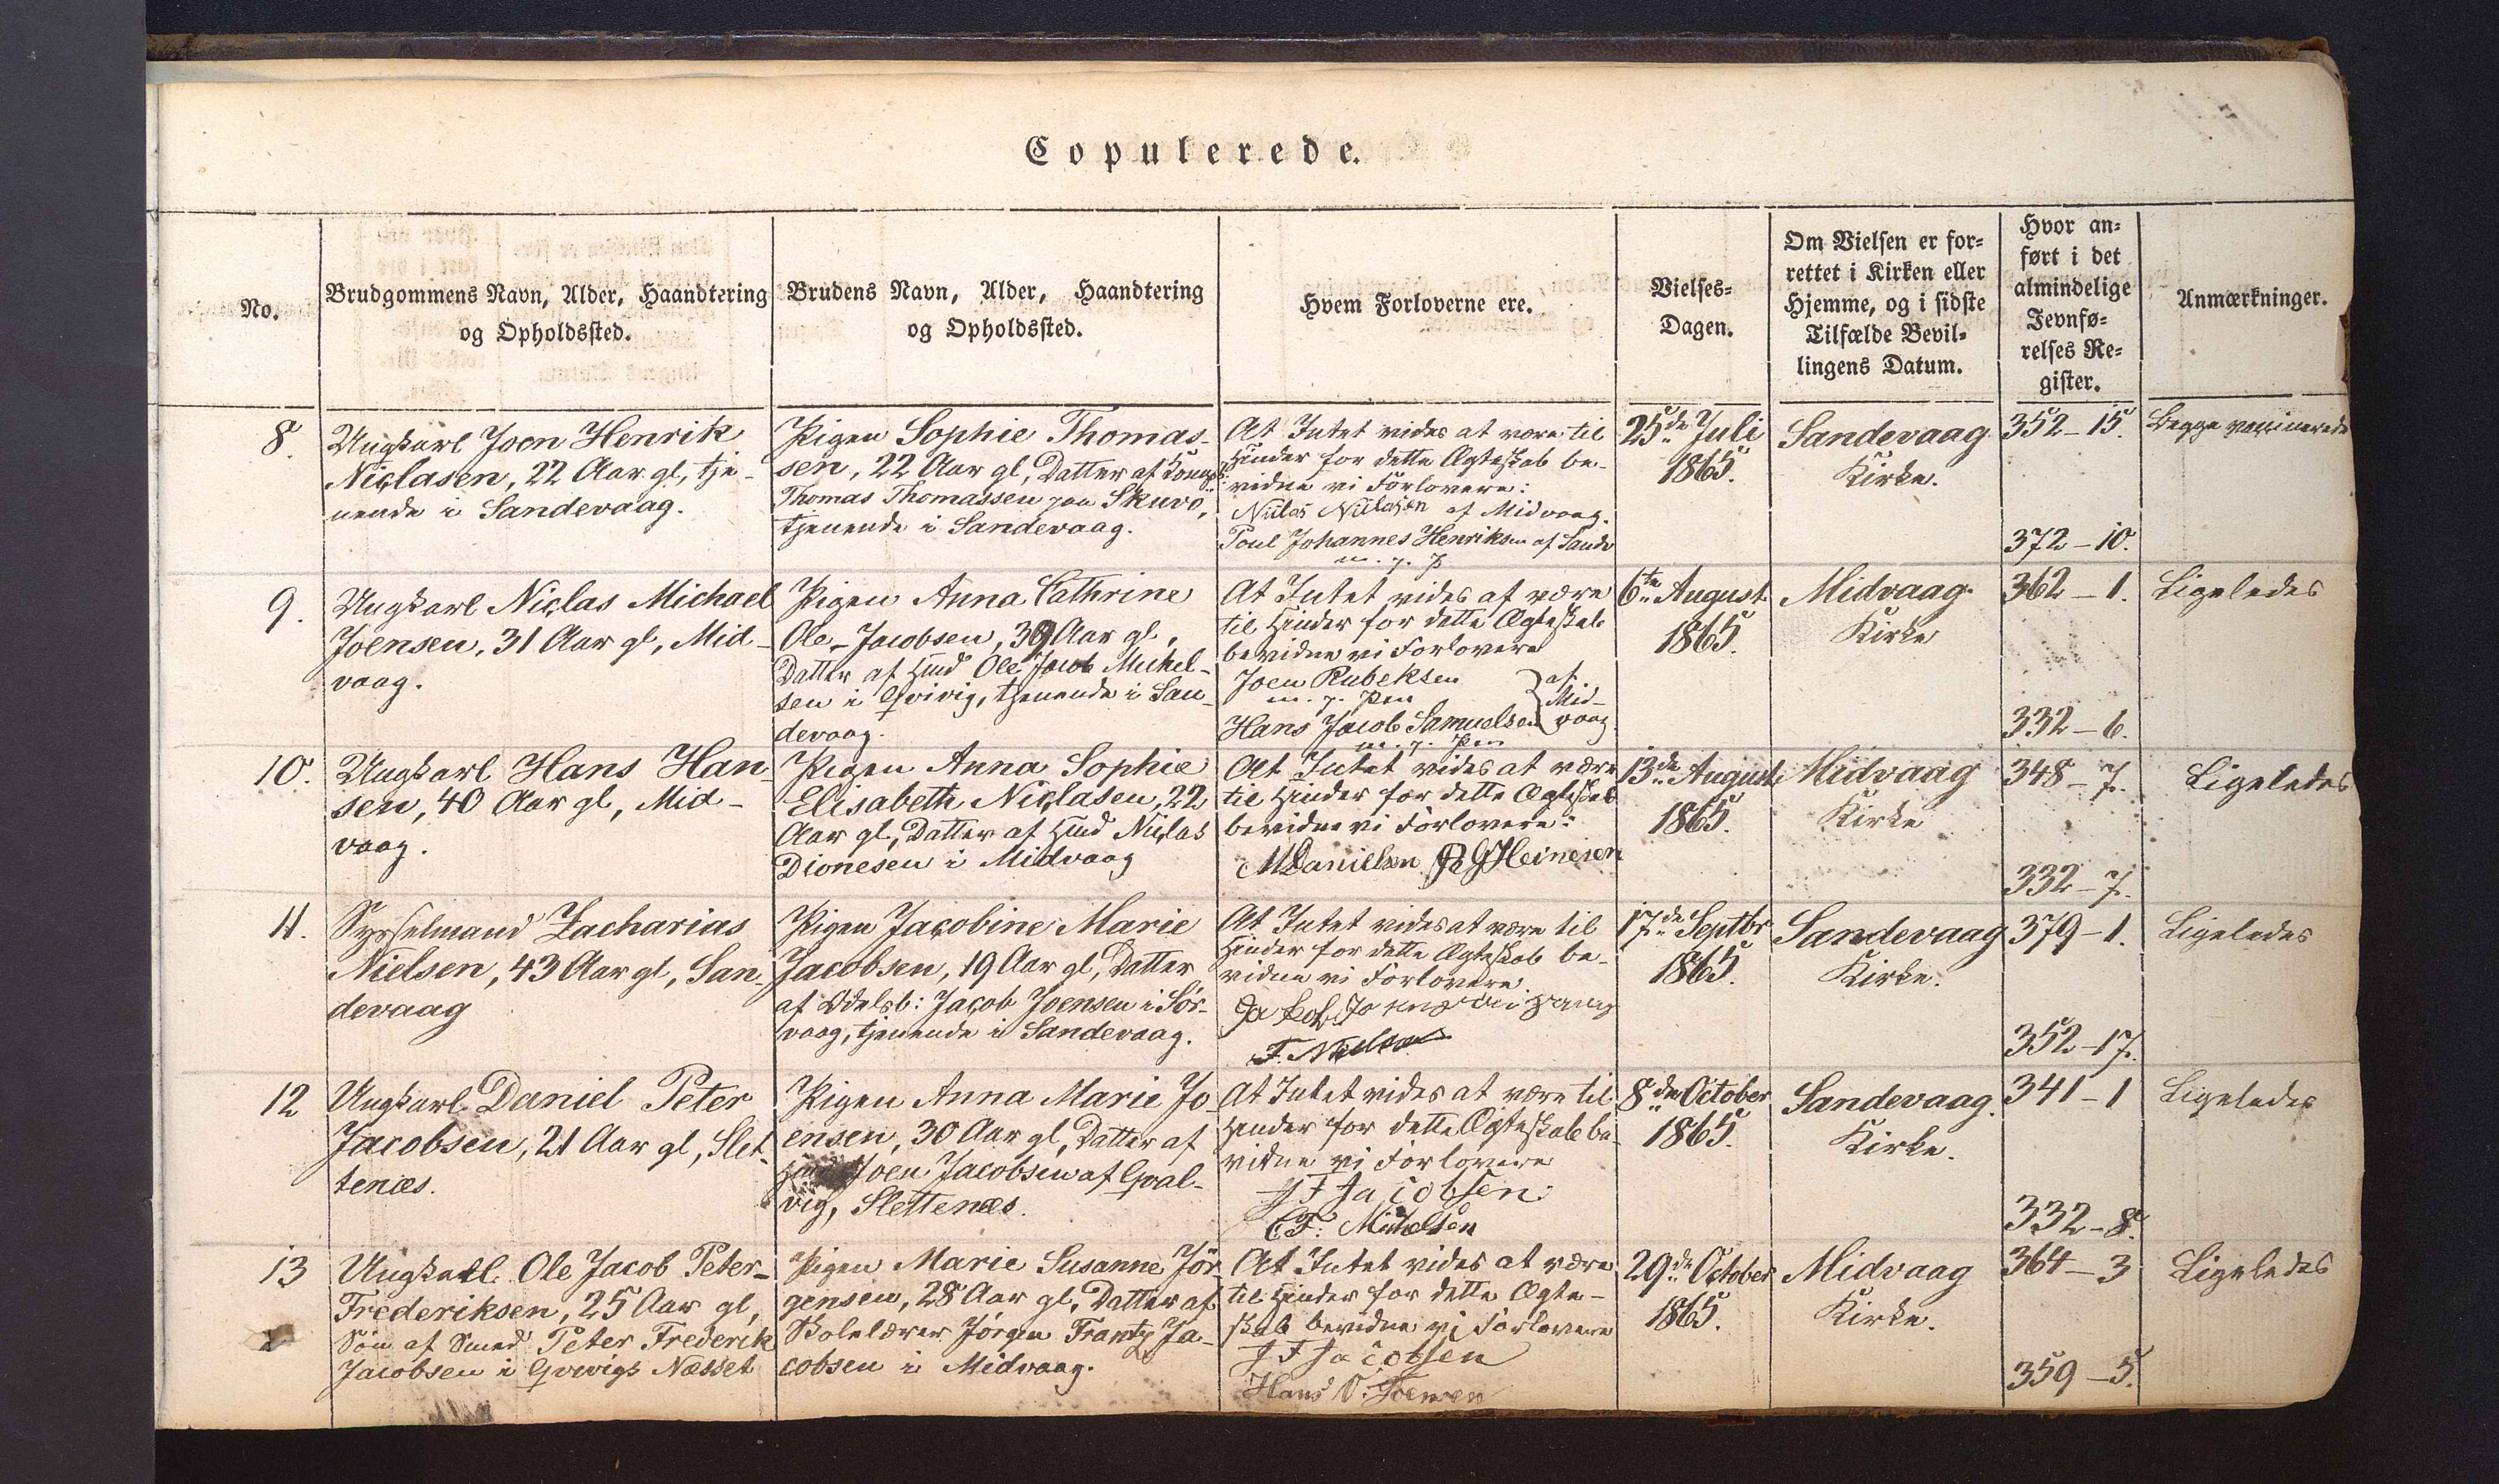 Copulerede.
No.
Brudgommens Navn, Alder, Haandtering
og Opholdssted.
Brudens Navn, Alder, Haandtering
og Opholdssted.
Hvem Forloverne ere.
Vielses-
Dagen.
Om Vielsen er for-
rettet i Kirken eller
Hjemme, og i sidste
Tilfælde Bevil-
lingens Datum.
Hvor an-
ført i det
almindelige
Jevnfø-
relses Re-
gister.
Anmærkninger.
8.
Ungkarl Joen Henrik
Niclasen, 22 Aar gl, tje-
nende i Sandevaag.
Pigen Sophie Thomas-
sen, 22 Aar gl, Datter af
Thomas Thomassen paa Skuvö,
tjenende i Sandevaag.
At Intet vides at være til
Hinder for dette Ægteskab be-
vidne vi Forlovere:
Niclas Niclasen af Midvaag.
Poul Johannes Henriksen af Sandv
m. p. P
25de Juli
1865.
Sandevaag
Kirke.
352-15.
372-10.
Begge vaccinerede
9.
Ungkarl Niclas Michael
Joensen, 31 Aar gl, Mid-
vaag.
Pigen Anna Cathrine
Ole-Jacobsen, 30 Aar gl,
Datter af Huusmd Ole Jacob Michel-
sen i Qvivig, tjenende i San-
devaag.
At Intet vides at være
til Hinder for dette Ægteskab
bevidne vi Forlovere
Joen Rubeksen
m. p. Pen
Hans Jacob Samuelsen
m. p. Pen
af
Mid-
vaag
6te August
1865.
Midvaag
Kirke
362-1.
332-6.
Ligeledes
10.
Ungkarl Hans Han-
sen, 40 Aar gl, Mid-
vaag.
Pigen Anna Sophie
Elisabeth Niclasen, 22
Aar gl, Datter af Huusmd Niclas
Dionesen i Midvaag
At Intet vides at være
til Hinder for dette Ægteskab
bevidne vi Forlovere:
MDanielsen Heinesen
13de August
1865.
Midvaag
Kirke
348-7.
332-7.
Ligeledes
11.
Sysselmand Zacharias
Nielsen, 43 Aar gl, San-
devaag
Pigen Jacobine Marie
Jacobsen, 19 Aar gl, Datter
af Odelsb: Jacob Joensen i Sör-
vaag, tjenende i Sandevaag.
At Intet vides at være til
Hinder for dette Ægteskab be-
vidne vi Forlovere
Jakob
F. Nielsen
17de Septbr
1865.
Sandevaag
Kirke.
379-1.
352-17.
Ligeledes
12
Ungkarl Daniel Peter
Jacobsen, 21 Aar gl, Slet-
tenæs.
Pigen Anna Marie Jo-
ensen, 30 Aar gl, Datter af
Joen Jacobsen af Qval-
vig, Slettenæs.
At Intet vides at være til
Hinder for dette Ægteskab be-
vidne vi Forlovere
J F Jacobsen.
C F. Michelsen
8de October
1865.
Sandevaag.
Kirke.
341-1
332-8.
Ligeledes
13
Ungkarl Ole Jacob Peter-
Frederiksen, 25 Aar gl,
Sön af Smed Peter Frederik
Jacobsen i Qvivigs Næsset
Pigen Marie Susanne Jör-
gensen, 28 Aar gl, Datter af
Skolelærer Jörgen Frantz Ja-
cobsen i Midvaag.
At Intet vides at være
til Hinder for dette Ægte-
skab bevidne vi Forlovere
J F Jacobsen
Hans O. Joensen
29de October
1865.
Midvaag
Kirke.
364-3
359-5.
Ligeledes